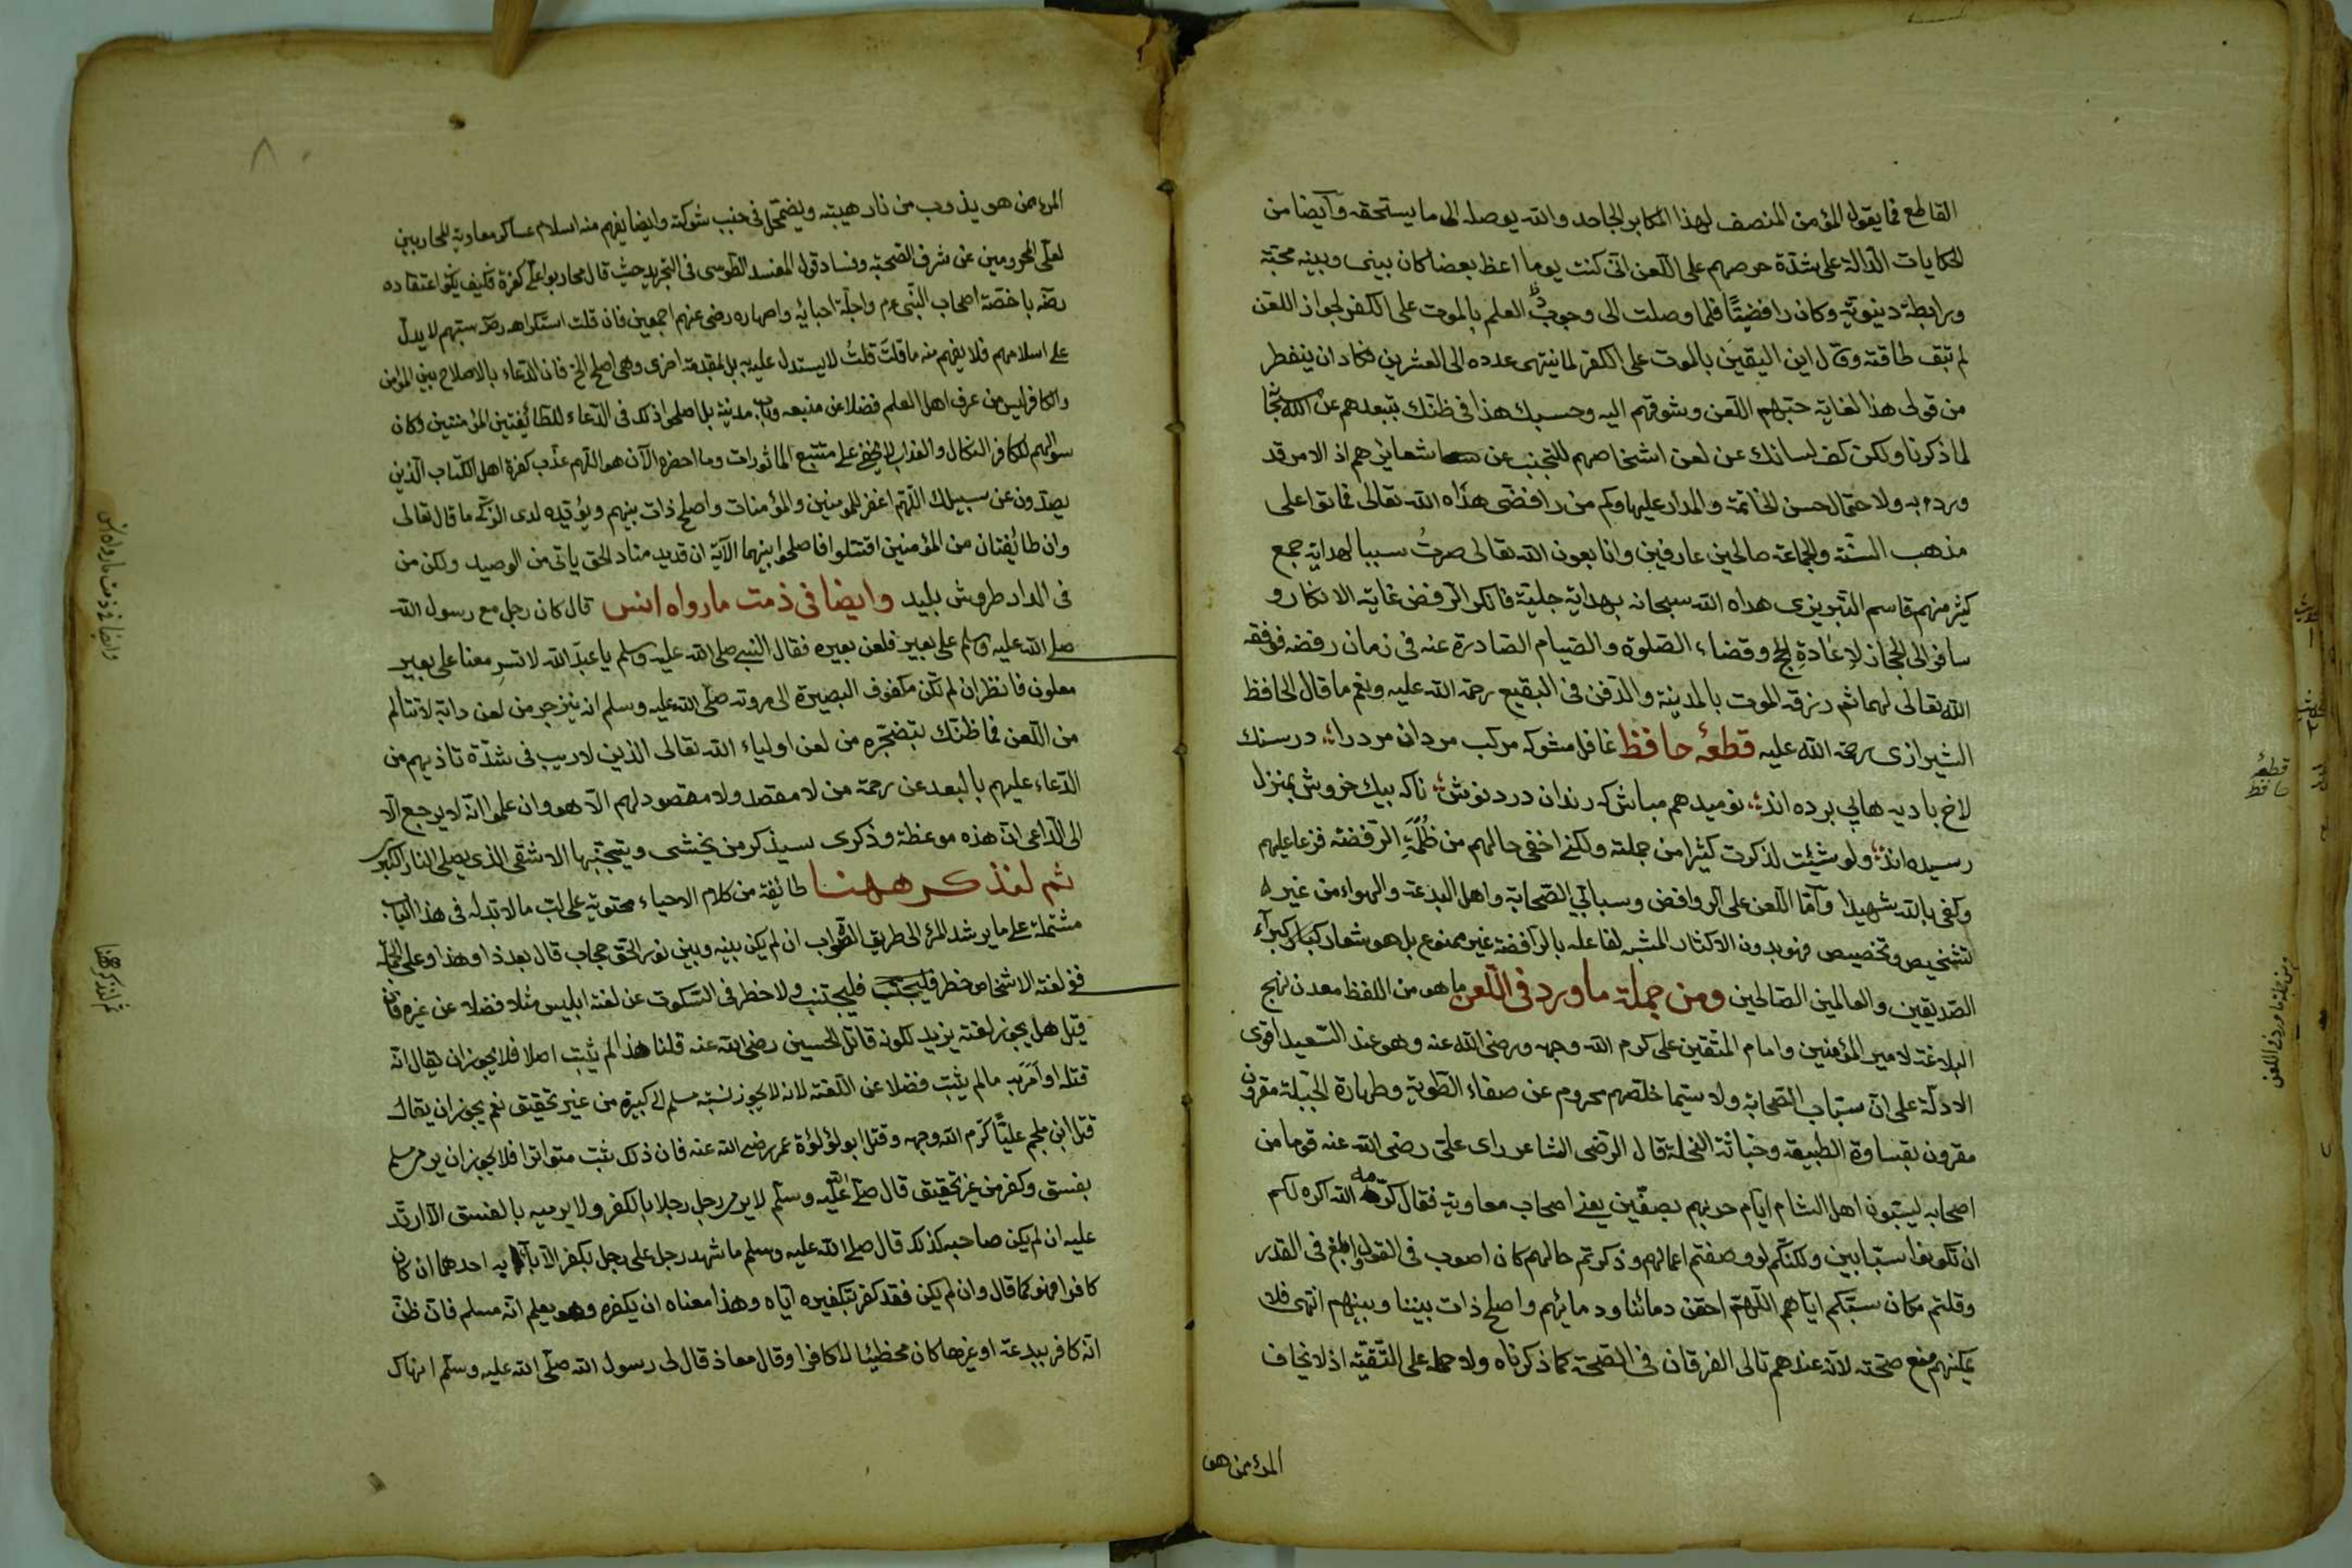 القاطع فما يقول المؤمن المنصف لهذا المكابر الجاحد والله يوصله الى ما يستحقه وآيضا من
الحكايات الدالة على شدة حرصهم على اللعن انى كنت يوما اعظ بعضا كان بينى وبينه محبة
ورابطة دينوية وكان رافضيًّا فلما وصلت الى وجوب العلم بالموت على الكفر لجواز اللعن
لم تبق طاقته وقال اين اليقين بالموت على الكفر لما ينتهى عدده الى العشرين فكاد ان ينفطر
من قولى هذا لغاية حبهم اللعن وشوقهم اليه وحسبك هذا فى ظنك بتبعدهم عن
لما ذكرنا ولكن كف لسانك عن لعن اشخاصهم للتجنب عن شعائرهم اذ الامر قد
ورد به ولاحتمال حسن الخاتمة والمدار عليها وكم من رافضى هداه الله تعالى فماتوا على
مذهب السنة والجماعة صالحين عارفين وانا بعون الله تعالى صرتُ سببا لهداية جمع
كثير منهم قاسم التبريزى هداه الله سبحانه بهداية جلية فانكر الرفض غاية الانكار و
سافر الى الحجاز لاعادةِ الحج وقضاء الصلوة والصيام الصادرة عنه فى زمان رفضه فوفقه
الله تعالى لهما ثم رزقه الموت بالمدينة والدفن فى البقيع رحمة الله عليه ونعم ما قال الحافظ
الشيرازى رحمة الله عليه قطعهٔ حافظ غافل مشو كه مركب مردان مرد را در سنك
لاخ باديه هاپى برده اند نوميد هم مباش كه رندان درد نوش ناكه بيك خروش بمنزل
رسيده اند ولو شئت لذكرت كثيرا من جملته ولكنى اخفى حالهم من ظُلْمَةِ الرفضه فزعا عليهم
وكفى بالله شهيدا وآمّا اللعن على الروافض وسبابى الصحابة واهل البدعة والهواء من غير
تشخيص وتخصيص فهو بدون الاكثار المشبه لفاعله بالرافضة غير ممنوع بل هو شعار كبراء
الصديقين والعالمين الصالحين ومن جملة ما ورد فى اللعن ما هو من اللفظ معدن نهج
البلاغة لامير المؤمنين وامام المتقين على كرم الله وجهه ورضى الله عنه وهو عند السعيد اقوى
الادلة على ان سباب الصحابة ولا سيما خلصهم محروم عن صفاء الطوية وطهارة الجبلة مقرون
مقرون بقساوة الطبيعة وخباثة النحلة قال الرضى الشاعر راى على رضى الله عنه قوما من
اصحابه يسبون اهل الشام ايام حربهم بصفين يعنى اصحاب معاوية فقال كرمه الله اكره لكم
ان تكونوا سبّابين ولكنكم لو وصفتم اعمالهم وذكرتم حالهم كان اصوب فى القول وابلغ فى القدر
وقلتم مكان سبكم اياهم اللهم احقن دمائنا ودمائهم واصلح ذات بيننا وبينهم انتهى فلا
يمكنهم منع صحته لانه عندهم تالى الفرقان فى الصحة كما ذكرناه ولا حمله على التقية اذ لا يخاف
المرء ممن هو
قطعهٔ حافظ
ومن جملة ما ورد فى اللعن
المرء ممن هو يذوب من نار هيبته ويضمحل فى جنب شوكته وايضا يفهم منه اسلام عساكر معاوية المحاربين
لعلى المحرومين عن شرف الصحبة وفساد قول المفسد الطوسى فى التجريد حيث قال محاربوا على كفرة فكيف اعتقاده
رضه باخصة اصحاب النبى عم واجلة احبائه واصهاره رضى عنهم اجمعين فان قلت استكراهه رضه سبهم لا يدل
على اسلامهم فلا يفهم منه ما قلتَ قلتُ لا يستدل عليه به بل بمقدمة اخرى وهى اصلح الخ فان الدعاء بالاصلاح بين المؤمن
والكافر ليس من عرف اهل العلم فضلا عن منبعه وباب مدينة بل اصلحوا ذلك فى الدعاء للطائفتين المؤمنتين وكان
سوالهم للكافر النكال والعذاب لا يخفى على متتبع الماثورات وما احضره الآن هو اللهم عذب كفرة اهل الكتاب الذين
يصدون عن سبيلك اللهم اغفر للمؤمنين والمؤمنات واصلح ذات بينهم ويؤيده لدى الزكى ما قال تعالى
وان طائفتان من المؤمنين اقتتلوا فاصلحوا بينهما الآية ان قديد مناد الحق ياتى من الوصيد ولكن من
فى الدار طروش بليد وايضا فى ذمّه ما رواه انس قال كان رجل مع رسول الله
صلى الله عليه وسلم على بعير فلعن بعيره فقال النبى صلى الله عليه وسلم يا عبد الله لا تسرِ معنا على بعير
ملعون فانظر ان لم تكن مكفوف البصيرة الى مروته صلى الله عليه وسلم انه ينزجر من لعن دابة لا تتالم
من اللعن فما ظنك بتضجره من لعن اولياء الله تعالى الذين لا ريب فى شدة تاذيهم من
الدعاء عليهم بالبعد عن رحمة من لا مقصد ولا مقصود لهم الا هو وان علموا انه لا يرجع الا
الى الداعى ان هذه موعظة وذكرى سيذكر من يخشى ويتجنبها الاشقى الذى يصلى النار الكبرى
ثم لنذكر ههنا طائفة من كلام الاحياء محتوية على لب ما لا بد له فى هذا الباب
مشتملة على ما يرشد المرء الى طريق الصواب ان لم يكن بينه وبين نور الحق حجاب قال بعد ذا وهذا وعلى الجملة
ففى لعنة الاشخاص خطر فليجتنب ولا خطر فى السكوت عن لعنة ابليس مثلا فضلا عن غيره فان
قيل هل يجوز لعنة يزيد لكونه قاتل الحسين رضى الله عنه قلنا هذا لم يثبت اصلا فلا يجوز ان يقال انه
قتله او امر به ما لم يثبت فضلا عن اللعنة لانه لا يجوز نسبة مسلم الى كبيرة من غير تحقيق نعم يجوز ان يقال
قتل ابن ملجم عليًّا كرم الله وجهه وقتل ابو لؤلؤة عمر رضى الله عنه فان ذلك ثبت متواترا فلا يجوز ان يرمى مسلم
بفسق وكفر من غير تحقيق قال صلى الله عليه وسلم لا يرمى رجل رجلا بالكفر ولا يرميه بالفسق الا ارتد
عليه ان لم يكن صاحبه كذلك قال صلى الله عليه وسلم ما شهد رجل على رجل بكفر الا باء به احدهما ان كان
كافرا فهو كما قال وان لم يكن فقد كفر بتكفيره اياه وهذا معناه ان يكفره وهو يعلم انه مسلم فان ظن
انه كافر ببدعة او غيرها كان مخطئا لا كافرا وقال معاذ قال لى رسول الله صلى الله عليه وسلم انهاك
وايضا فى ذمّه ما رواه انس
ثم لنذكر ههنا
٨